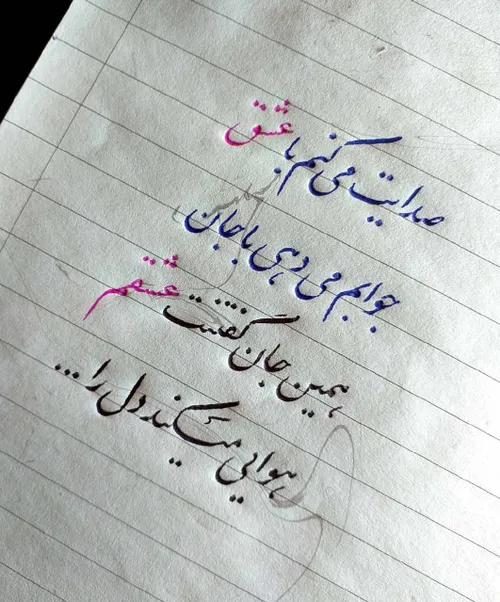 صدایت می کنم با عشق
جوابم می دهی با جان
همین جان گفتنت عشقم
هوایی میکند دل را...